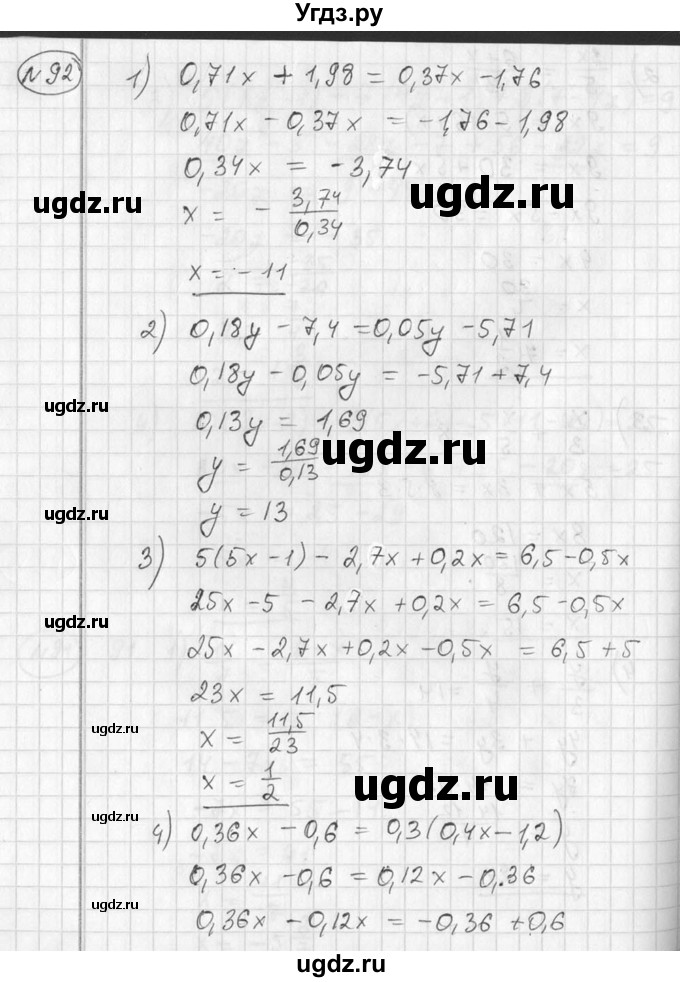 Угдз.ру
№92
1) 0,71x + 1,98 = 0,37x - 1,76
0,71x - 0,37x = -1,76 - 1,98
0,34x = - 3,74
ugdz.ru
ugdz.ru
x = - 3,74/0,34
x = - 11
2) 0,18y - 7,4 = 0,05y - 5,71
0,18y - 0,05y = -5,71 + 7,4
ugdz.ru
0,13y = 1,69
ugdz.ru
y = 1,69/0,13
ugdz.ru
y = 13
3) 5(5x - 1) - 2,7x + 0,2x = 6,5 - 0,5x
25x - 5 - 2,7x + 0,2x = 6,5 - 0,5x
25x - 2,7x + 0,2x - 0,5x = 6,5 + 5
23x = 11,5
ugdz.ru
x = 11,5/23
ugdz.ru
x = 1/2
ugdz.ru
4) 0,36x - 0,6 = 0,3(0,4x - 1,2)
0,36x - 0,6 = 0,12x - 0.36
ugdz.ru
0,36x - 0,12x = - 0,36 + 0,6
ugdz.ru